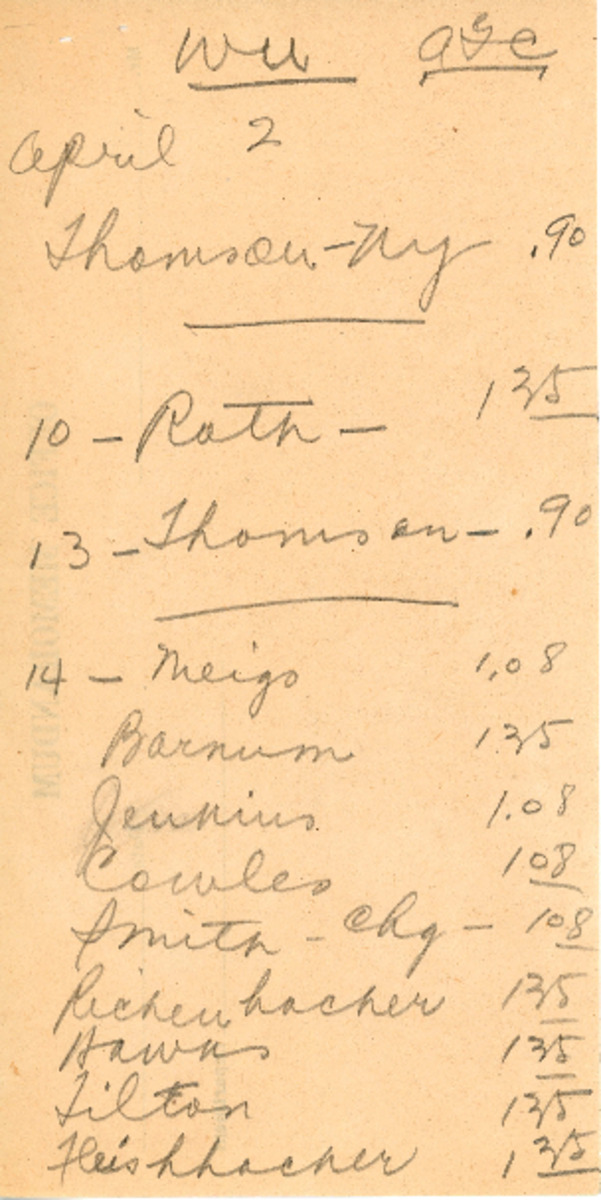 WU AGC
April 2
Thomson - NY .90
10 - Roth - 1 35
13 - Thomson - .90
14 - Meigs 1.08
Barnum 1 35
Jenkins 1.08
Cowles 1 08
Smith - Chg - 1 08
Richenbacher 1 35
Hawks 1 35
Tilton 1 35
Fleishhacker 1 35